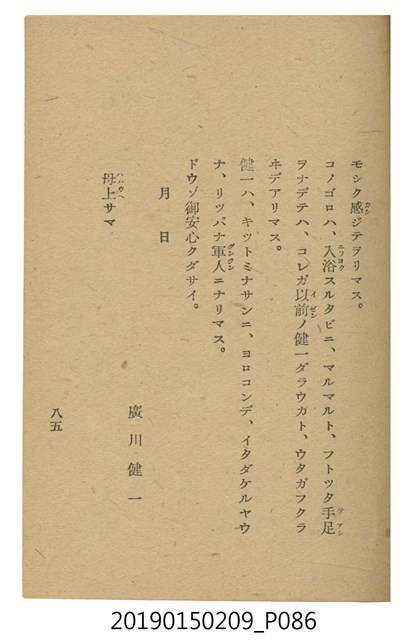 モシク感ジテヲリマス。
コノゴロハ、入浴スルタビニ、マルマルト、フトツタ手足
ヲナデテハ、コレガ以前ノ健一ダラウカト、ウタガフクラ
ヰデアリマス。
健一ハ、キットミナサンニ、ヨロコンデ、イタダケルヤウ
ナ、リッパナ軍人ニナリマス。
ドウゾ御安心クダサイ。
月 日
廣川健一
母上サマ
八五
20190150209_P086